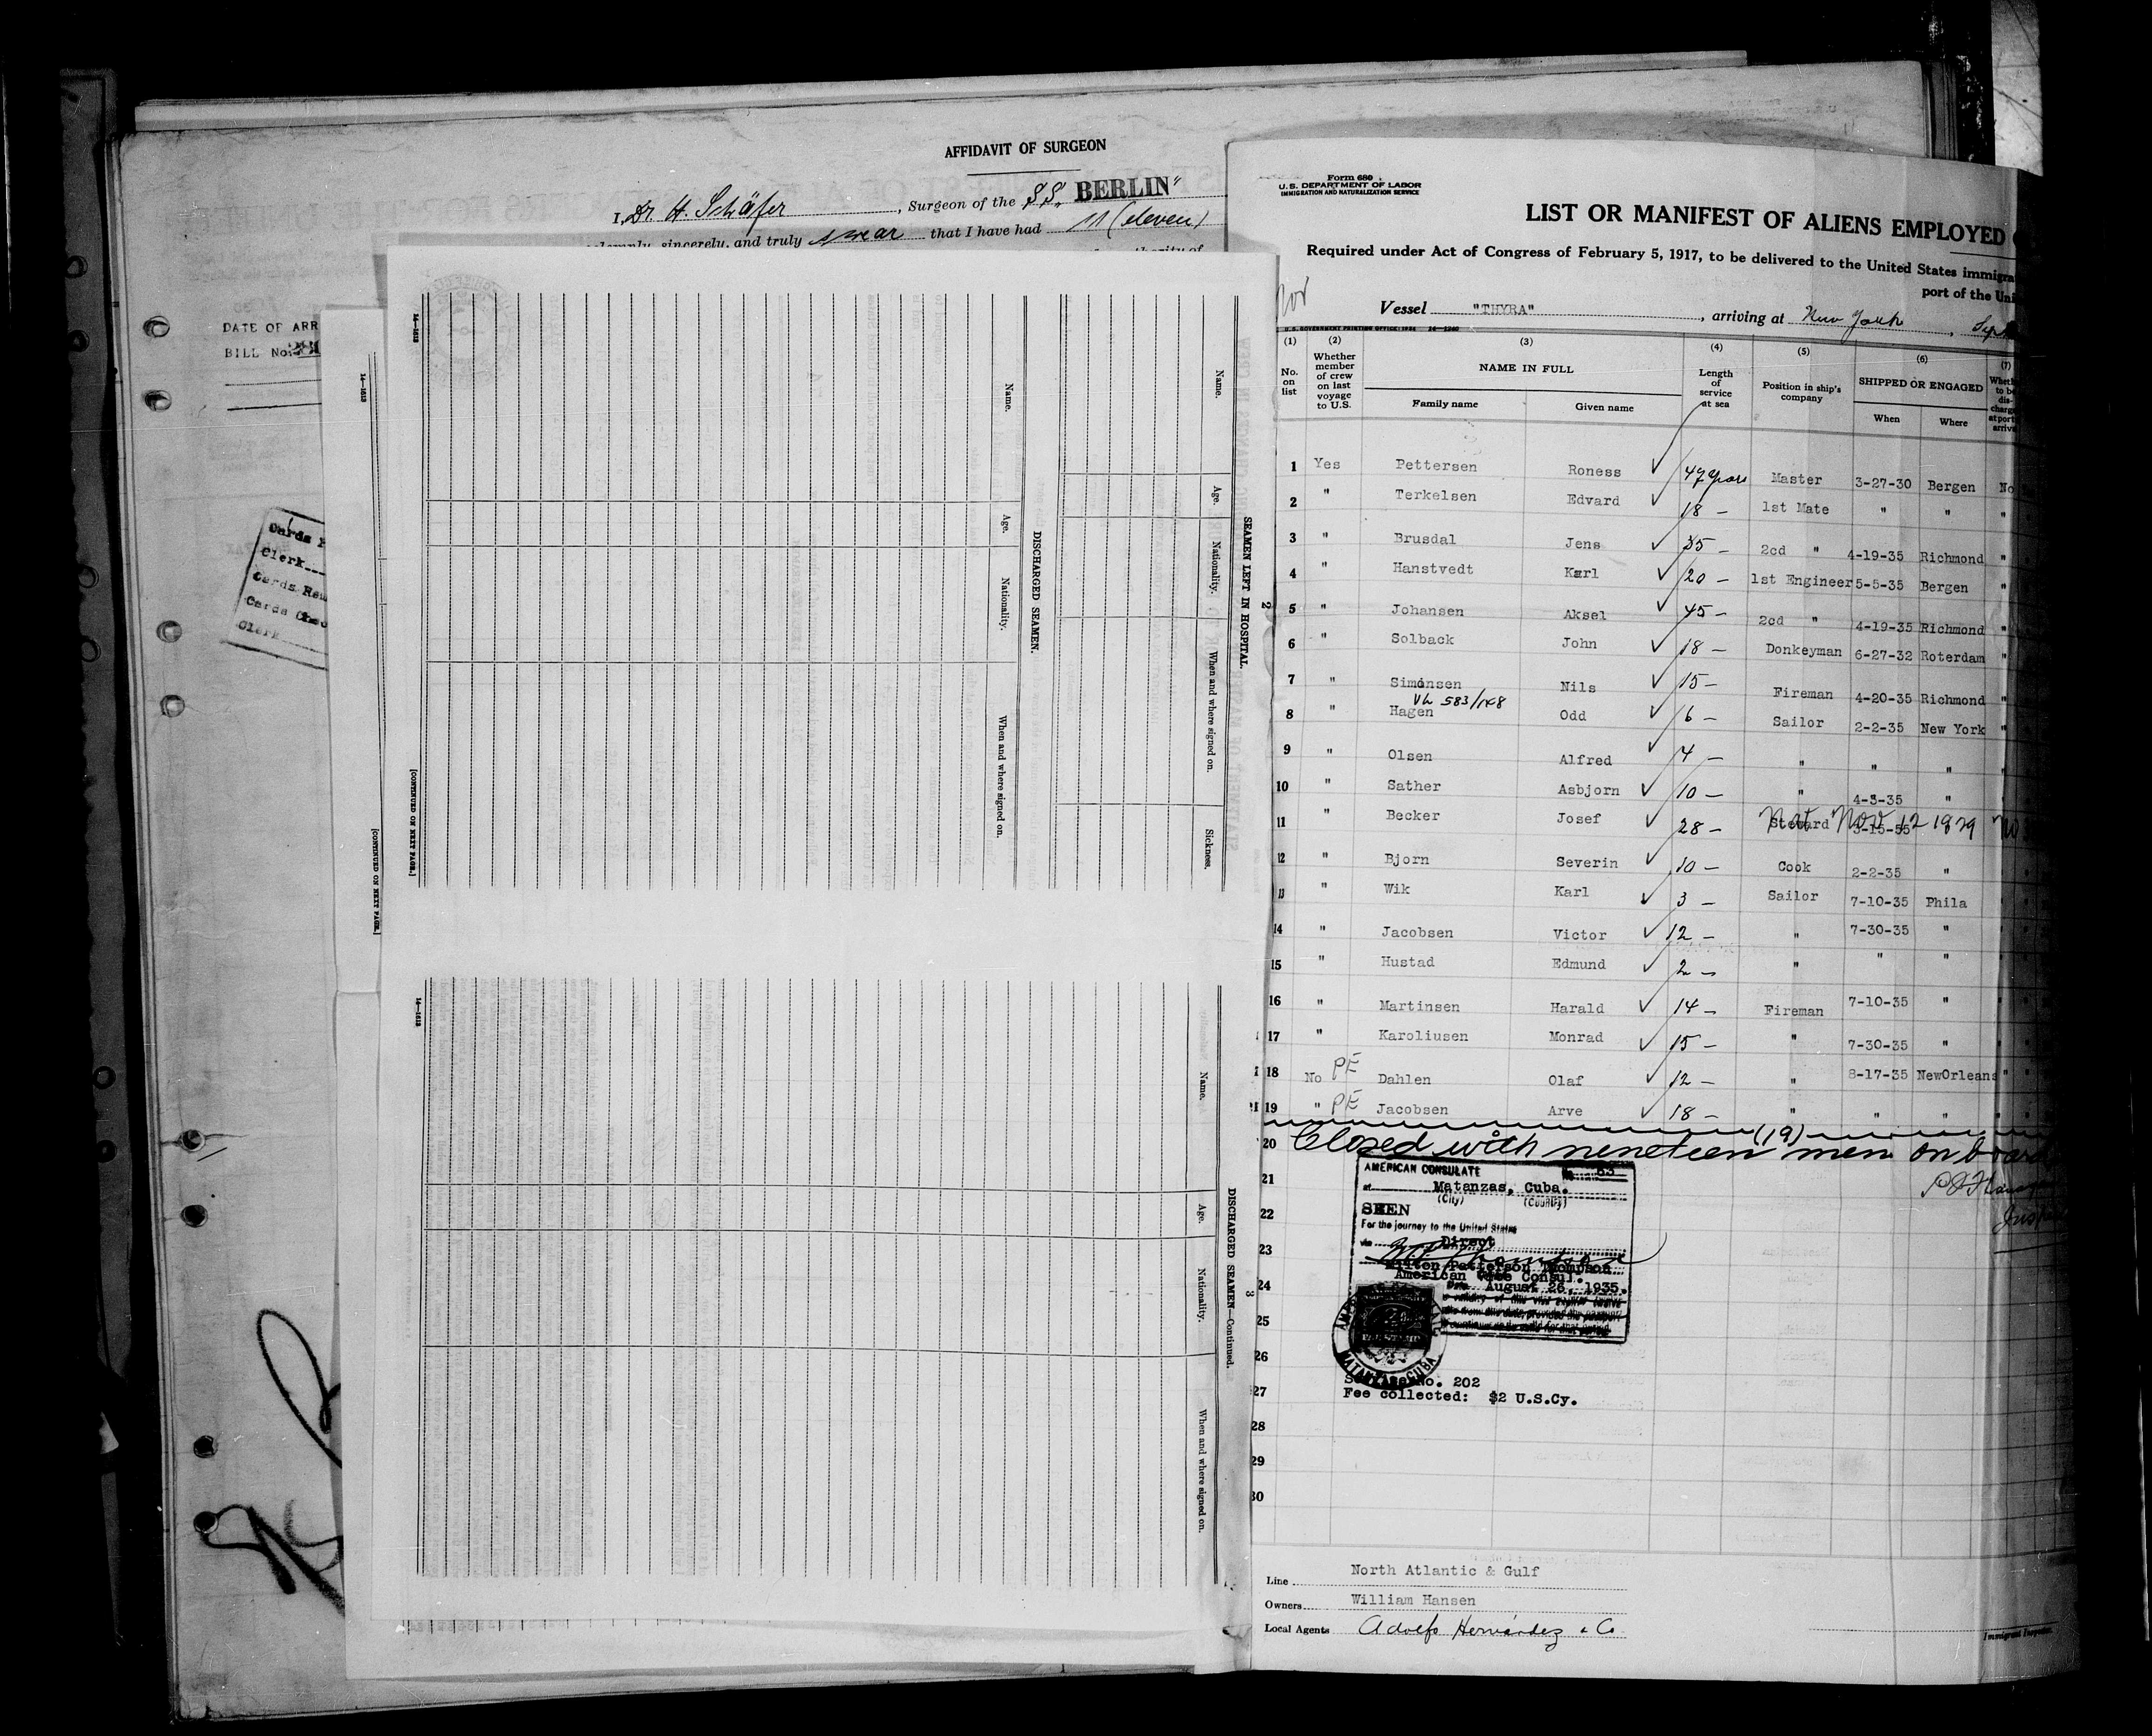 AFFIDAVIT OF SURGEON
I, Dr H. Schäfer, Surgeon of the S.S. BERLIN"
solemnly, sincerely, and truly swear that I have had 11 (eleven)
DATE OF ARR
BILL No.
Cards
Clerk
Cards
Cards
Clerk
14—1513
[CONTINUED ON NEXT PAGE.]
14—1513
[CONTINUED ON NEXT PAGE.]
Name. Age. Nationality. When and where signed on.
DISCHARGED SEAMEN.
Name. Age. Nationality. When and where signed on. Sickness.
SEAMEN LEFT IN HOSPITAL.
2
14—1513
Name. Age. Nationality. When and where signed on.
DISCHARGED SEAMEN—Continued.
3
Form 680
U. S. DEPARTMENT OF LABOR
IMMIGRATION AND NATURALIZATION SERVICE
LIST OR MANIFEST OF ALIENS EMPLOYED
Required under Act of Congress of February 5, 1917, to be delivered to the United States immigra
port of the Uni
Nor
Vessel "THYRA", arriving at New York, Sept
U. S. GOVERNMENT PRINTING OFFICE: 1934 14—1240
(1) (2) (3) (4) (5) (6) (7)
No. on list
Whether member of crew on last voyage to U.S.
NAME IN FULL
Family name Given name
Length of service at sea
Position in ship's company
SHIPPED OR ENGAGED
When Where
Wheth to be dis- charg at port arriv
1 Yes Pettersen Roness ✓ 47 years Master 3-27-30 Bergen No
2 " Terkelsen Edvard ✓ 18 — 1st Mate " " "
3 " Brusdal Jens ✓ 35 — 2cd " 4-19-35 Richmond "
4 " Hanstvedt Karl ✓ 20 — 1st Engineer 5-5-35 Bergen "
5 " Johansen Aksel ✓ 45 — 2cd " 4-19-35 Richmond "
6 " Solback John ✓ 18 — Donkeyman 6-27-32 Roterdam "
7 " Simonsen Nils ✓ 15 — Fireman 4-20-35 Richmond "
VL 583/148
8 " Hagen Odd ✓ 6 — Sailor 2-2-35 New York "
9 " Olsen Alfred ✓ 4 — " " " "
10 " Sather Asbjorn ✓ 10 — " 4-3-35 "
11 " Becker Josef 28 — Steward 3-15-35
Nat Nov 12 1929
12 " Bjorn Severin ✓ 10 — Cook 2-2-35 "
13 " Wik Karl ✓ 3 — Sailor 7-10-35 Phila
14 " Jacobsen Victor ✓ 12 — " 7-30-35 "
15 " Hustad Edmund ✓ 2 — " " "
16 " Martinsen Harald ✓ 14 — Fireman 7-10-35 "
17 " Karoliusen Monrad ✓ 15 — " 7-30-35 "
18 No PE Dahlen Olaf ✓ 12 — " 8-17-35 NewOrleans "
19 " PE Jacobsen Arve ✓ 18 — " " " "
20 Closed with nineteen (19) men on board
21
22
23
24
25
26
27
28
29
30
AMERICAN CONSULATE No. 63
at Matanzas, Cuba.
(City) (Country)
SEEN
For the journey to the United States
via Direct
Milton Patterson Thompson
American Vice Consul.
Date August 26, 1935.
MATANZAS, CUBA
Service No. 202
Fee collected: $2 U.S.Cy.
Line North Atlantic & Gulf
Owners William Hansen
Local Agents Adolfo Hernández & Co
Immigrant Inspector.